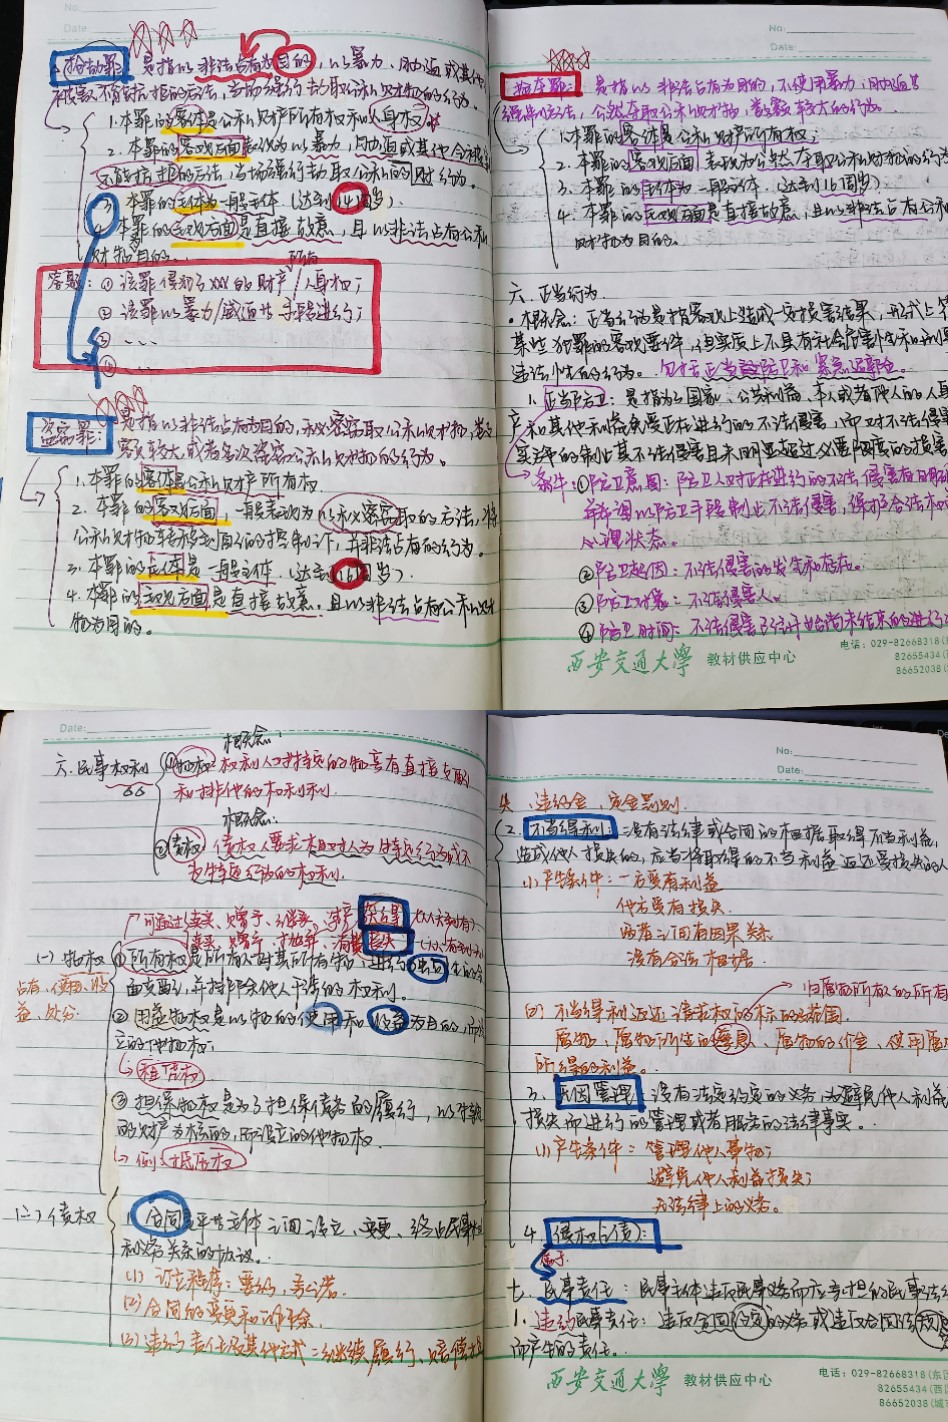 No.
Date:
抢劫罪: 是指以非法占有为目的, 以暴力、胁迫或其他
被害人不能抗拒的方法, 当场强行劫取公私财物的行为。
1.本罪的客体是公私财产所有权和人身权。
2.本罪的客观方面表现为以暴力、胁迫或其他令被害人
不能抗拒的方法, 当场强行劫取公私的财行为。
3.本罪的主体为一般主体. (达到14周岁).
4.本罪的主观方面是直接故意, 且以非法占有公私
财物为目的.
所有
答题: ①该罪侵犯了XXX的财产/人身权;
②该罪以暴力/威逼等手段进行;
③ . . .
④ . . .
盗窃罪: 是指以非法占有为目的, 秘密窃取公私财物, 数
额较大或者多次盗窃公私财物的行为。
1.本罪的客体是公私财产所有权.
2.本罪的客观方面, 一般表现为以秘密窃取的方法, 将
公私财物转移到自己的控制之下, 并非法占有的行为。
3.本罪的主体是一般主体. (达到16周岁).
4.本罪的主观方面是直接故意. 且以非法占有公私财
物为目的。
No.
Date:
抢夺罪: 是指以非法占有为目的, 不使用暴力、胁迫等
强制方法, 公然夺取公私财物, 数额较大的行为.
1.本罪的客体是公私财产所有权;
2.本罪的客观方面, 表现为公然夺取公私财物的行为
3.本罪的主体为一般主体. (达到16周岁)
4.本罪的主观方面是直接故意, 且以非法占有公私
财物为目的。
六. 正当行为
·概念: 正当行为是指客观上造成一定损害结果, 形式上符
某些犯罪的客观要件, 但实质上不具有社会危害性和刑事
违法性的行为。包括正当防卫和紧急避险。
1.正当防卫: 是指为了国家、公共利益、本人或者他人的人身
产和其他利益免受正在进行的不法侵害, 而对不法侵害
实施的制止其不法侵害且未明显超过必要限度的损害
条件: ①防卫意图: 防卫人对正在进行的不法侵害有明确
并希望以防卫手段制止不法侵害, 保护合法权
心理状态。
②防卫起因: 不法侵害的发生和存在。
③防卫对象: 不法侵害人。
④防卫时间: 不法侵害已经开始尚未结束的进行
西安交通大学 教材供应中心
电话: 029-82668318(
82655434(
86652038(
Date:
概念:
六.民事权利 ①物权: 权利人对特定的物享有直接支配
和排他的权利.
概念:
②债权: 债权人要求相对人为特定行为或不
为特定行为的权利.
可通过买卖、赠予、继承、 获得 (从无到有)
卖、赠予、抛弃、消 丧失 (从有到
(一) 物权 ①所有权是所有人对其所有物, 进行 的全
占有、使用、收 面支配, 并排除他人干涉的权利。
益、处分 ②用益物权是以物的使用和收益为目的, 而设
立的他物权;
租借权
③担保物权是为了担保债务的履行, 以特定
的财产为标的, 而设立的他物权.
例: 抵压权
(二) 债权 1.合同是平等主体之间设立、变更、终止民事权
利义务关系的协议。
(1) 订立程序: 要约、承诺.
(2) 合同的变更和解除.
(3) 违约责任及其他方式: 继续履行、赔偿损
No.
Date:
失、违约金、定金罚则.
2.不当得利: 没有法律或合同的根据取得不当利益,
造成他人损失的, 应当将取得的不当利益返还受损失的人
(1)产生条件: 一方受有利益
他方受有损失.
两者之间有因果关系.
没有合法根据.
归原物所有人的所有
(2) 不当得利返还请求权的标的及范围.
原物、原物所生的孳息、原物的价金、使用原
所得的利益。
3.无因管理: 没有法定约定的义务, 为避免他人利益
损失而进行的管理或者服务的法律事实。
(1)产生条件: 管理他人事物;
避免他人利益损失;
无法律上的义务。
4.侵权(之债):
属于
七.民事责任: 民事主体违反民事义务而应承担的民事法
1.违约民事责任: 违反合同约定的义务或违反合同法规
而产生的责任.
西安交通大学 教材供应中心
电话: 029-82668318(东
82655434(西
86652038(城